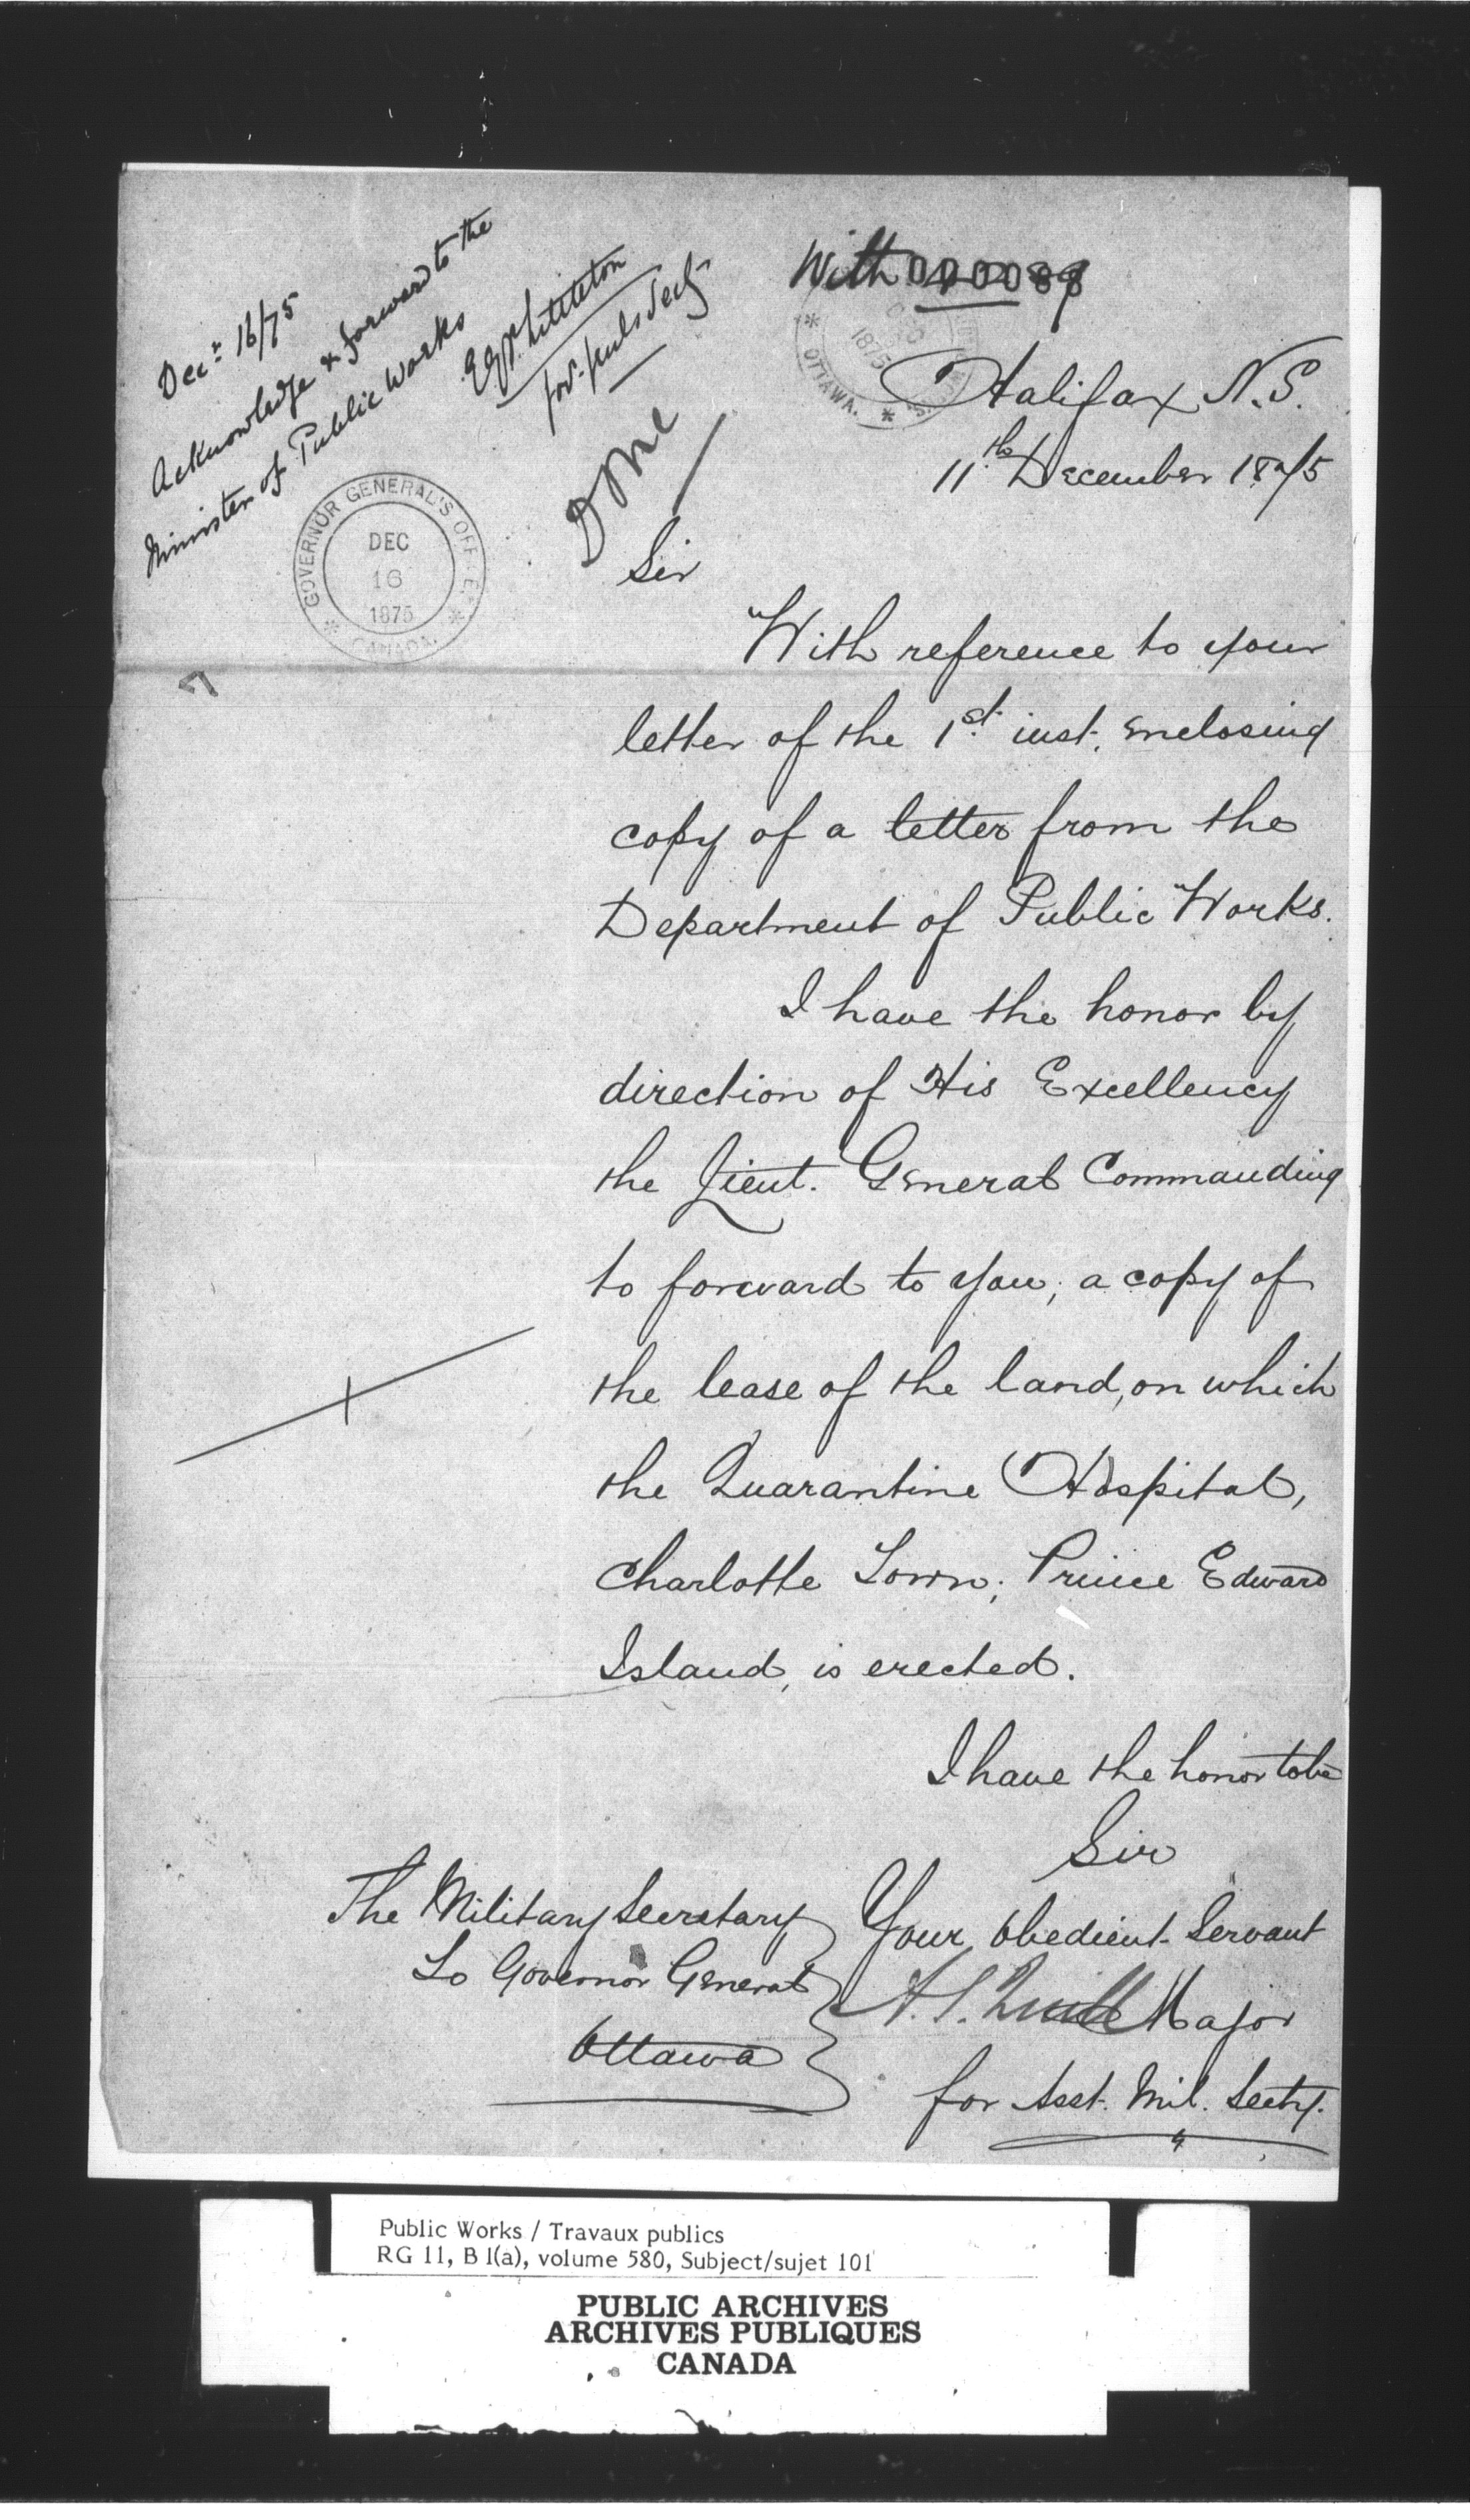 With
Decr 16/75
Acknowledge & forward to the
Minister of Public Works
EGP Littleton
for Govs Secy
Done
GOVERNOR GENERAL'S OFFICE
DEC
16
1875
CANADA.
OTTAWA.
1875
Halifax N.S.
11th December 1875
Sir
With reference to your
letter of the 1st inst. enclosing
copy of a letter from the
Department of Public Works.
I have the honor by
direction of His Excellency
the Lieut. General Commanding
to forward to you, a copy of
the lease of the land, on which
the Quarantine Hospital,
Charlotte Town, Prince Edward
Island, is erected.
I have the honor to be
Sir
Your Obedient Servant
Major
for Asst. Mil. Secty.
The Military Secretary
To Governor General
Ottawa
Public Works / Travaux publics
RG 11, B 1(a), volume 580, Subject/sujet 101
PUBLIC ARCHIVES
ARCHIVES PUBLIQUES
CANADA